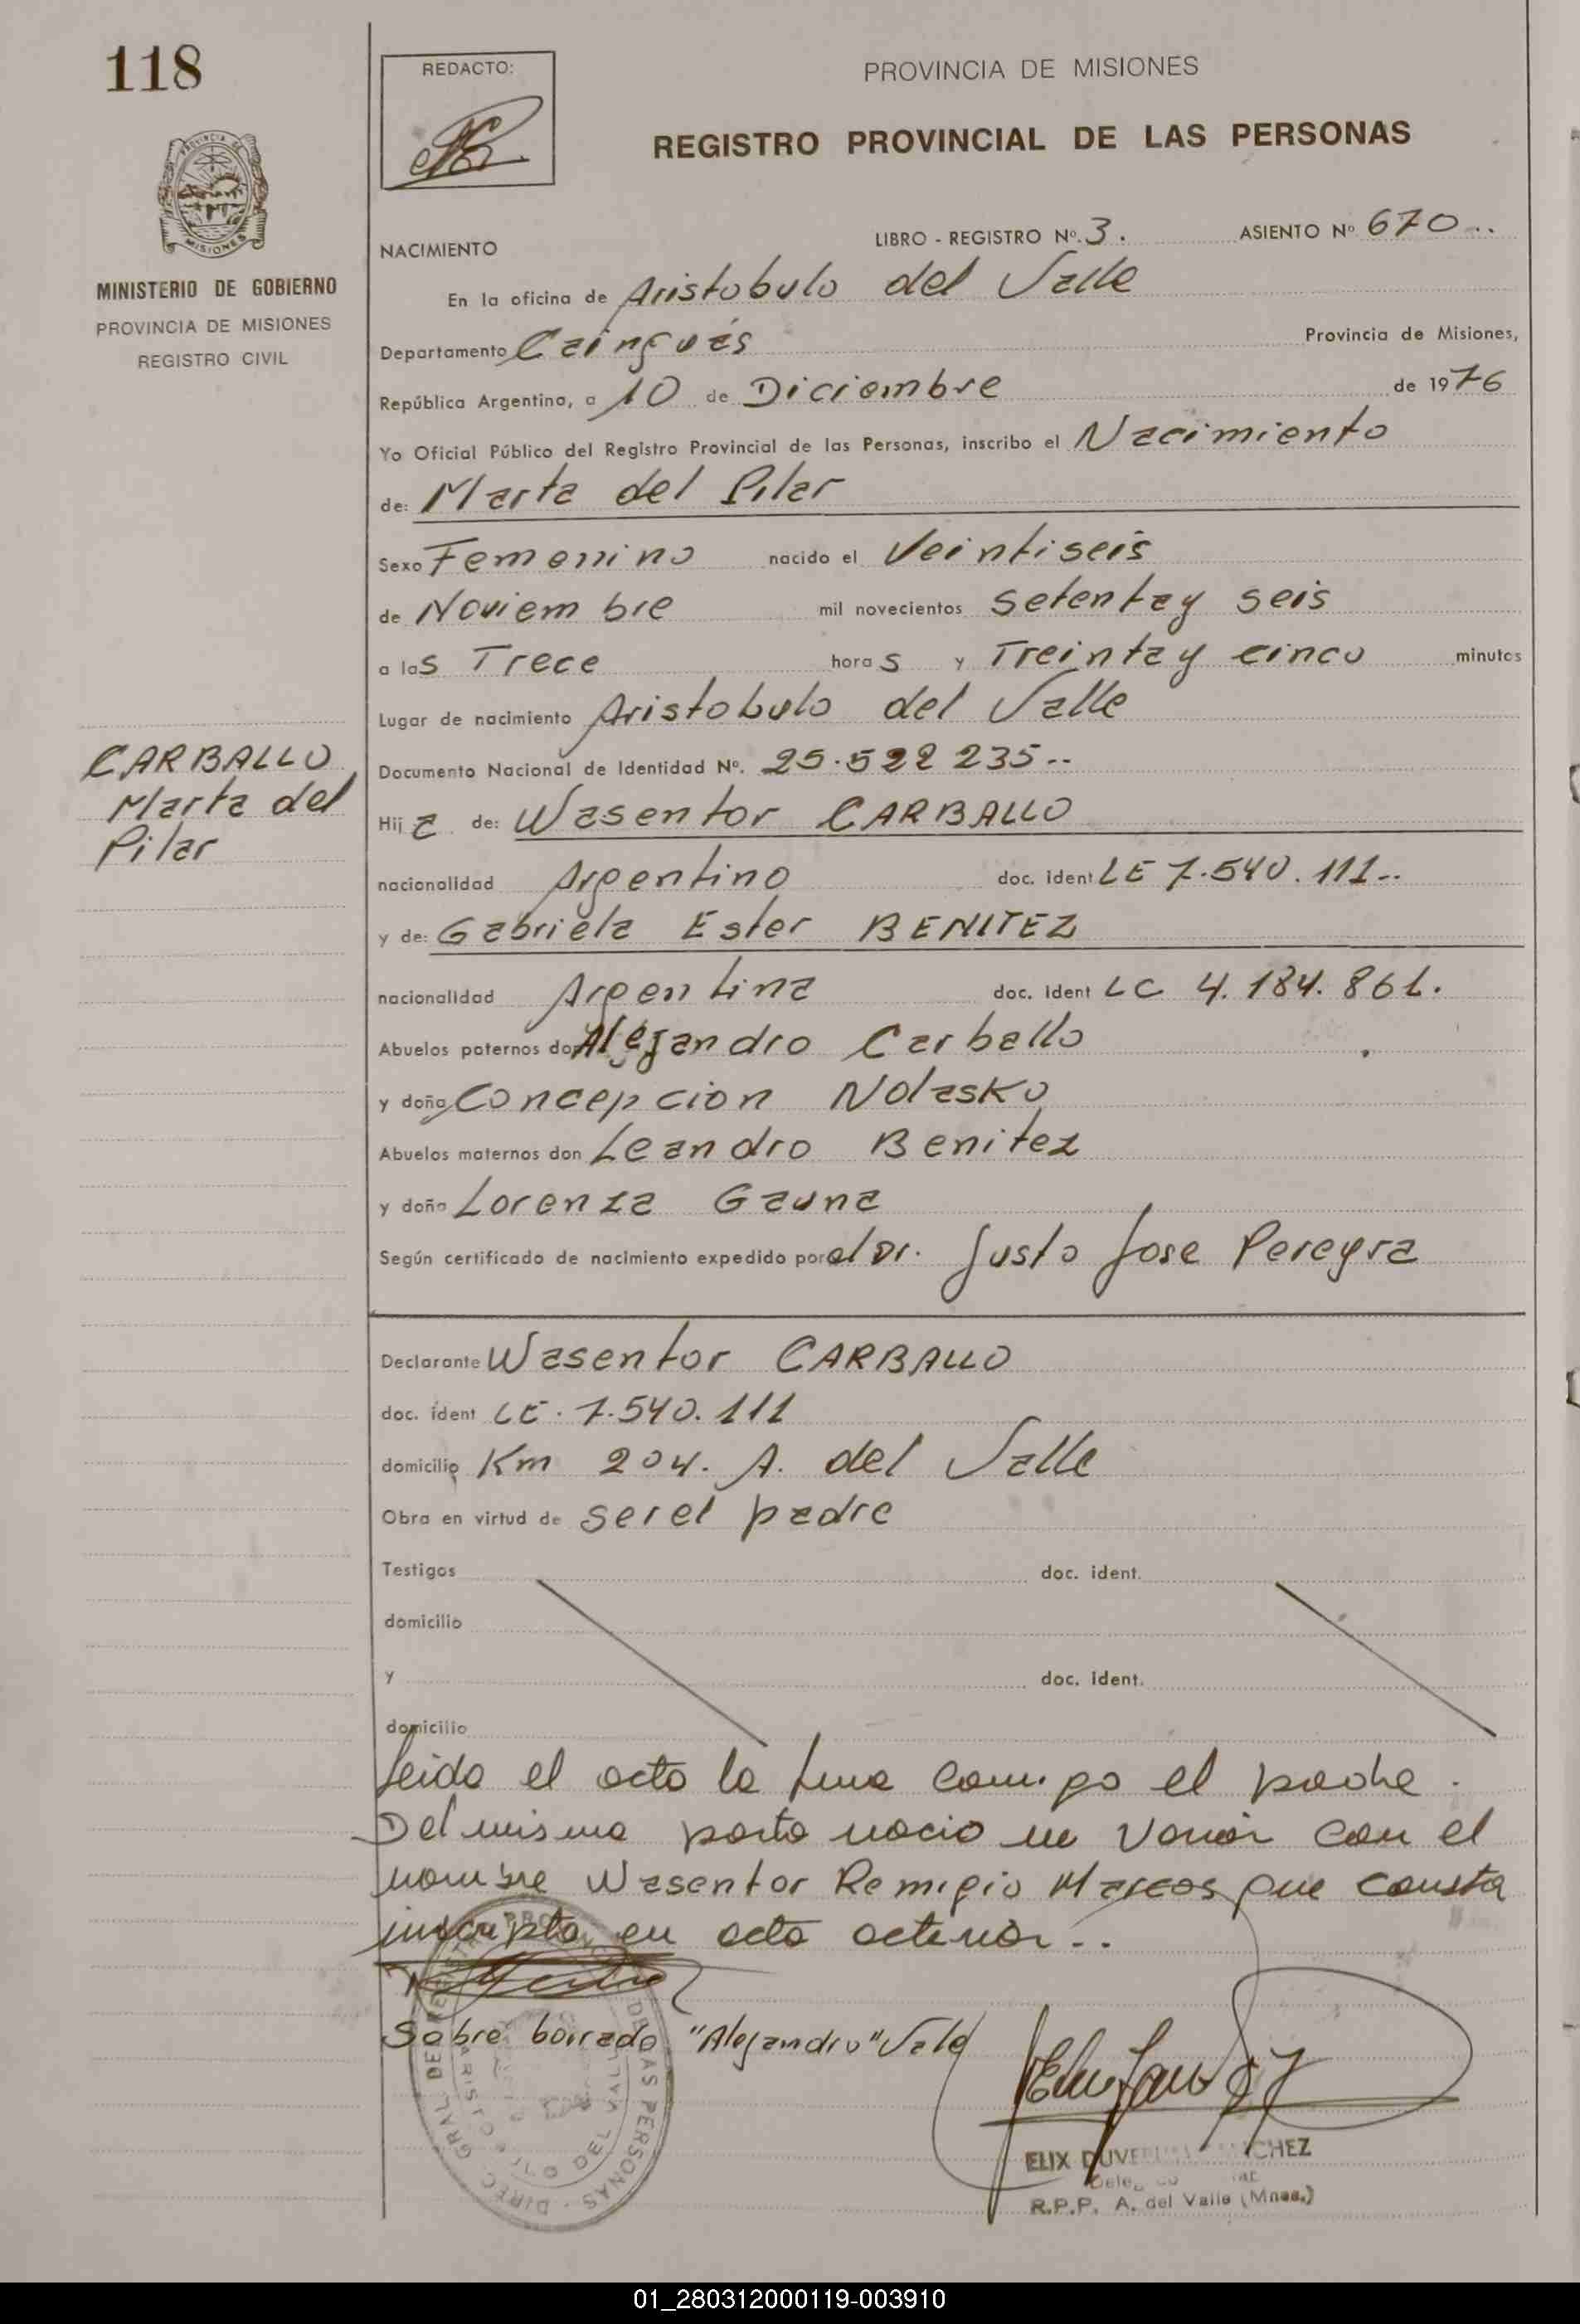 118
REDACTO:
PROVINCIA DE MISIONES
REGISTRO PROVINCIAL DE LAS PERSONAS
MISIONES
MINISTERIO DE GOBIERNO
PROVINCIA DE MISIONES
REGISTRO CIVIL
NACIMIENTO LIBRO - REGISTRO Nº. 3. ASIENTO Nº 670..
En la oficina de Aristobulo del Valle
Departamento Cainguás Provincia de Misiones,
República Argentina, a 10 de Diciembre de 1976
Yo Oficial Público del Registro Provincial de las Personas, inscribo el Nacimiento
de: Marta del Pilar
Sexo Femenino nacido el Veintiseis
de Noviembre mil novecientos setenta y seis
a las Trece horas y Treinta y cinco minutos
Lugar de nacimiento Aristobulo del Valle
CARBALLO
Marta del
Pilar
Documento Nacional de Identidad Nº. 25.522 235..
Hija de: Wasentor CARBALLO
nacionalidad Argentino doc. ident LE 7.540.111..
y de: Gabriela Ester BENITEZ
nacionalidad Argentina doc. ident LC 4.184.861.
Abuelos paternos don Alejandro Carballo
y doña Concepcion Nolasko
Abuelos maternos don Leandro Benitez
y doña Lorenza Gauna
Según certificado de nacimiento expedido por el Dr. Justo Jose Pereyra
Declarante Wasentor CARBALLO
doc. ident LE. 7.540.111
domicilio Km 204. A. del Valle
Obra en virtud de ser el padre
Testigos doc. ident.
domicilio
y doc. ident.
domicilio
Leida el acta la firma conmigo el padre.
Del mismo parto nacio un varón con el
nombre Wasentor Remigio Marcos que consta
inscripto en acta acterior..
Sobre borrado "Alejandro" Vale
ELIX CHEZ
R.P.P. A. del Valle (Mnes.)
01_280312000119-003910